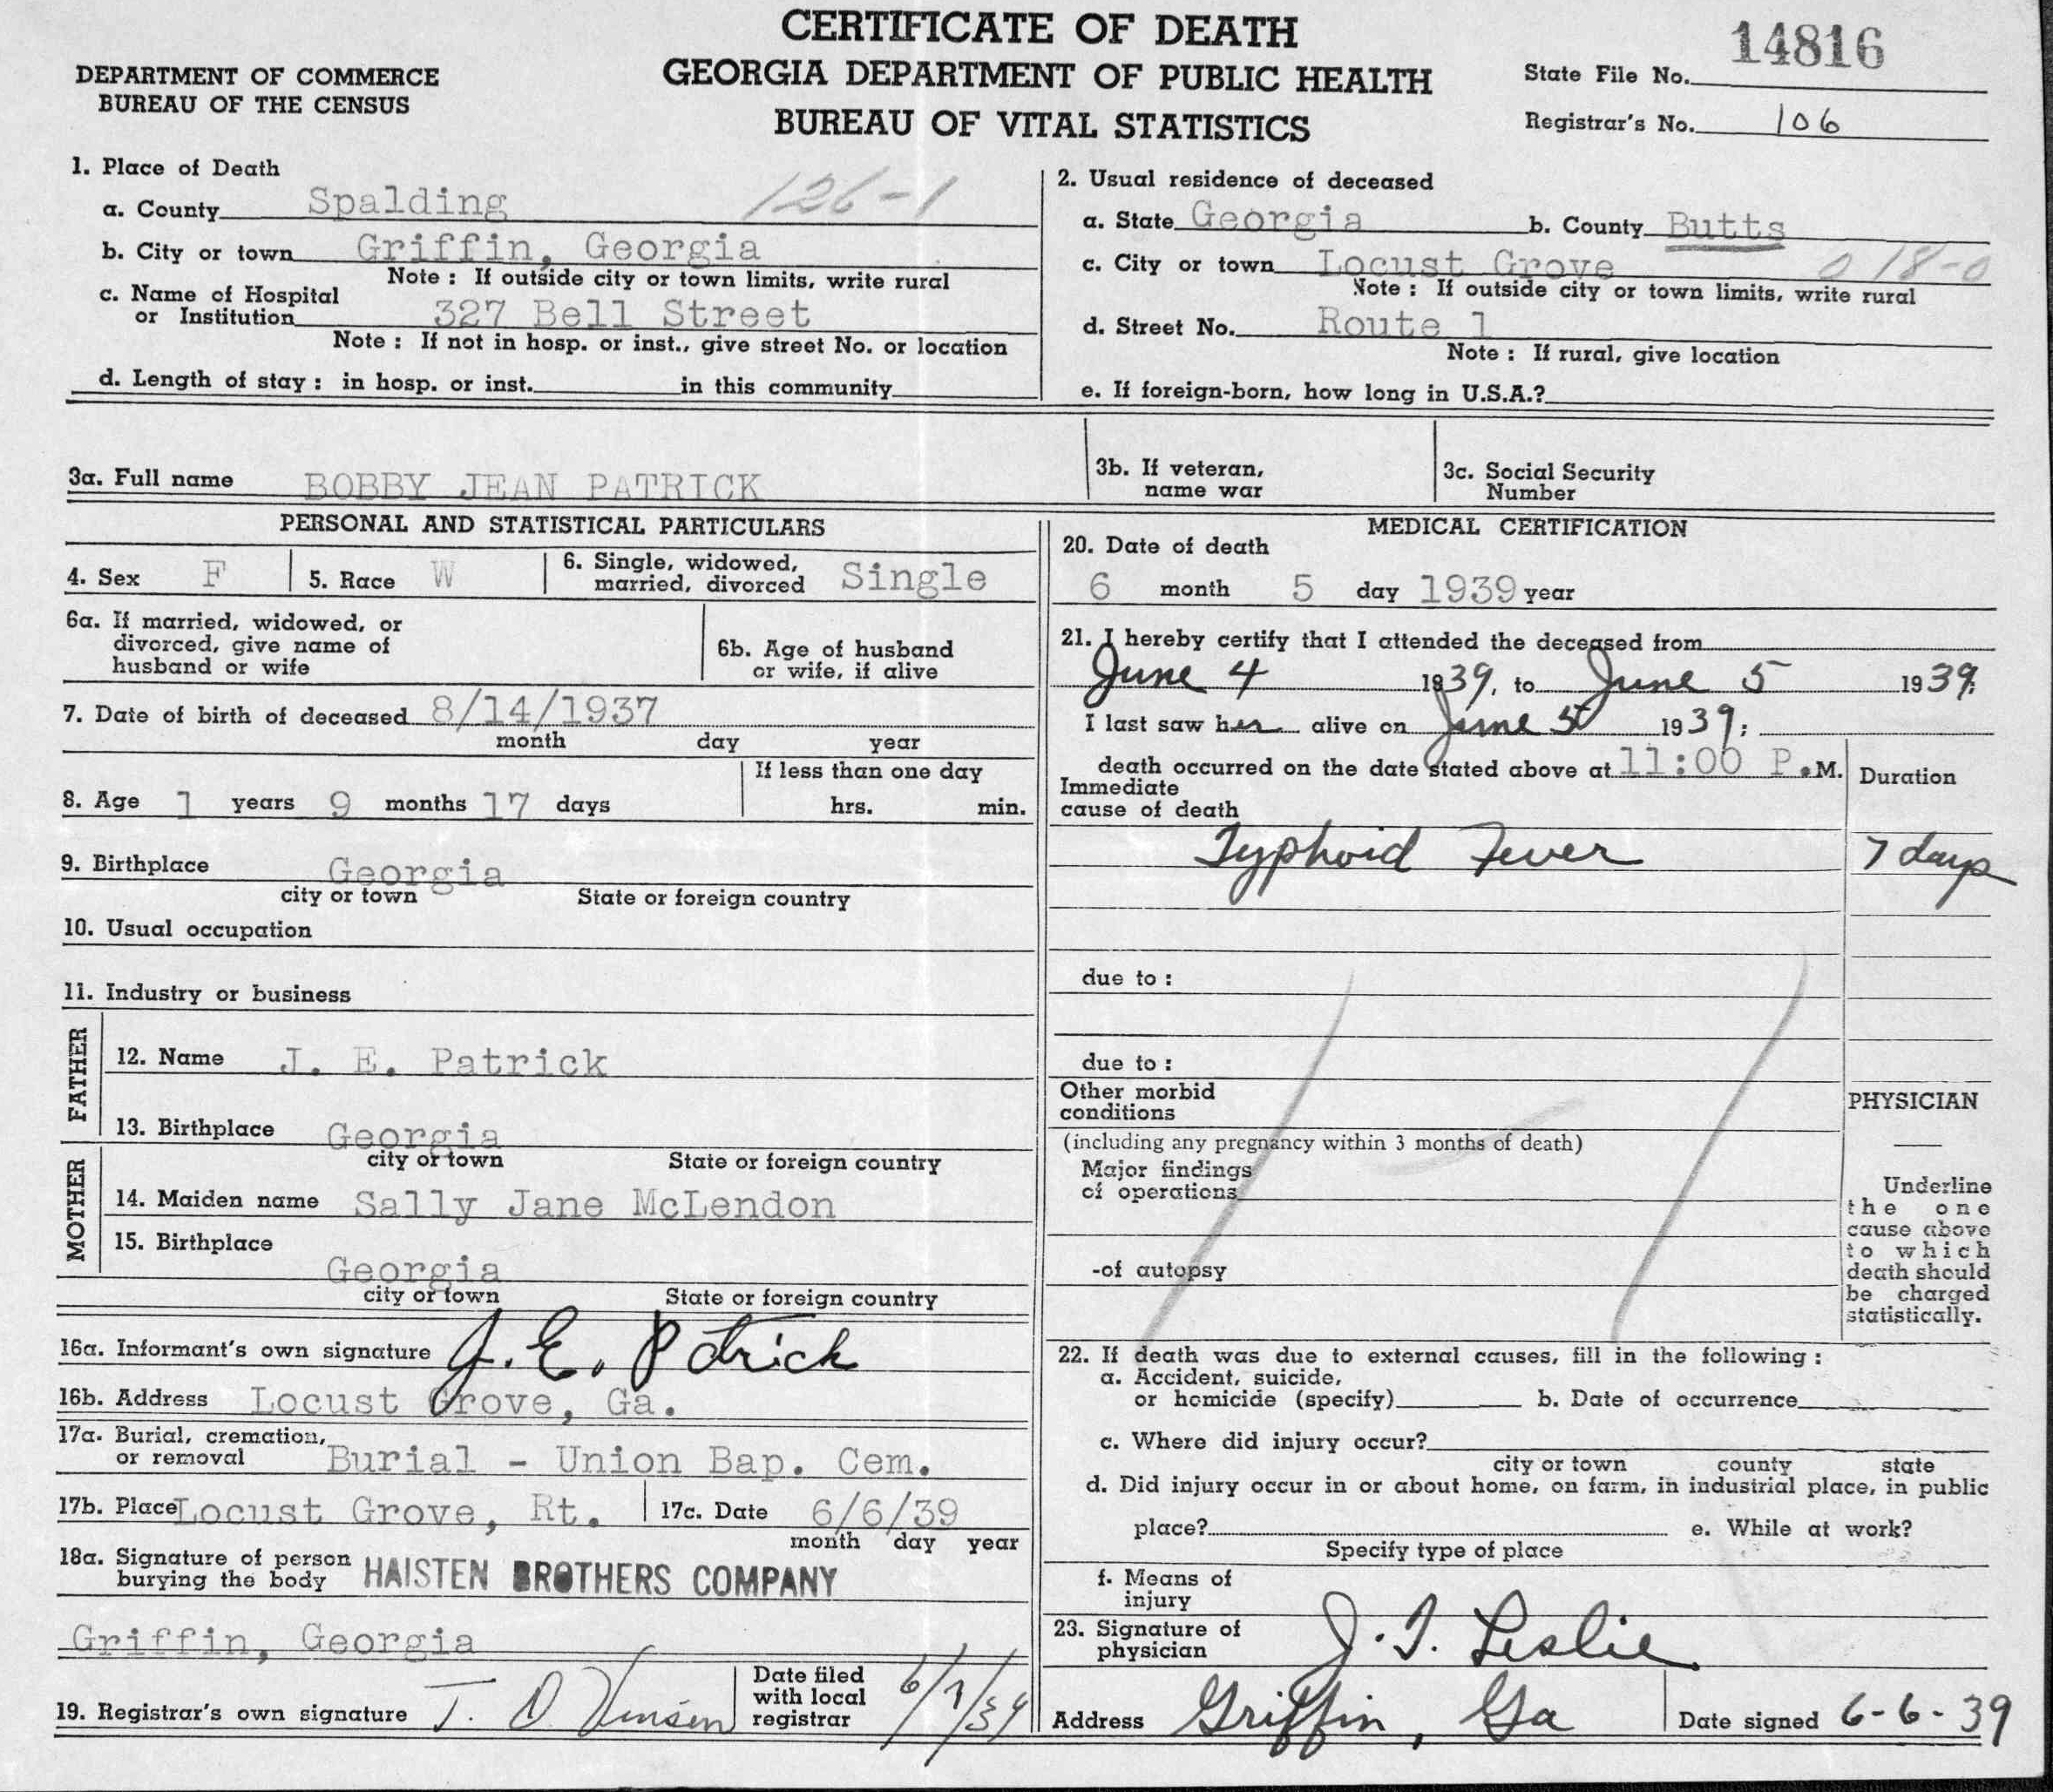 CERTIFICATE OF DEATH
GEORGIA DEPARTMENT OF PUBLIC HEALTH
BUREAU OF VITAL STATISTICS
DEPARTMENT OF COMMERCE
BUREAU OF THE CENSUS
State File No. 14816
Registrar's No. 106
1. Place of Death
a. County Spalding 126-1
b. City or town Griffin, Georgia
Note: If outside city or town limits, write rural
c. Name of Hospital
or Institution 327 Bell Street
Note: If not in hosp. or inst., give street No. or location
d. Length of stay: in hosp. or inst. in this community
2. Usual residence of deceased
a. State Georgia b. County Butts
c. City or town Locust Grove 018-0
Note: If outside city or town limits, write rural
d. Street No. Route 1
Note: If rural, give location
e. If foreign-born, how long in U.S.A.?
3a. Full name BOBBY JEAN PATRICK
3b. If veteran,
name war
3c. Social Security
Number
PERSONAL AND STATISTICAL PARTICULARS
4. Sex F 5. Race W 6. Single, widowed,
married, divorced Single
6a. If married, widowed, or
divorced, give name of
husband or wife
6b. Age of husband
or wife, if alive
7. Date of birth of deceased 8/14/1937
month day year
8. Age 1 years 9 months 17 days
If less than one day
hrs. min.
9. Birthplace Georgia
city or town State or foreign country
10. Usual occupation
11. Industry or business
FATHER
12. Name J. E. Patrick
13. Birthplace Georgia
city or town State or foreign country
MOTHER
14. Maiden name Sally Jane McLendon
15. Birthplace
Georgia
city or town State or foreign country
16a. Informant's own signature J. E. Patrick
16b. Address Locust Grove, Ga.
17a. Burial, cremation,
or removal Burial - Union Bap. Cem.
17b. Place Locust Grove, Rt. 17c. Date 6/6/39
month day year
18a. Signature of person
burying the body HAISTEN BROTHERS COMPANY
Griffin, Georgia
19. Registrar's own signature T. O. Vinson
Date filed
with local
registrar 6/7/39
MEDICAL CERTIFICATION
20. Date of death
6 month 5 day 1939 year
21. I hereby certify that I attended the deceased from
June 4 1939, to June 5 1939;
I last saw her alive on June 5 1939;
death occurred on the date stated above at 11:00 P.M.
Duration
Immediate
cause of death
Typhoid Fever 7 days
due to:
due to:
Other morbid
conditions
(including any pregnancy within 3 months of death)
Major findings
of operations
-of autopsy
PHYSICIAN
Underline
the one
cause above
to which
death should
be charged
statistically.
22. If death was due to external causes, fill in the following:
a. Accident, suicide,
or homicide (specify) b. Date of occurrence
c. Where did injury occur?
city or town county state
d. Did injury occur in or about home, on farm, in industrial place, in public
place? e. While at work?
Specify type of place
f. Means of
injury
23. Signature of
physician J. T. Leslie
Address Griffin, Ga Date signed 6-6-39